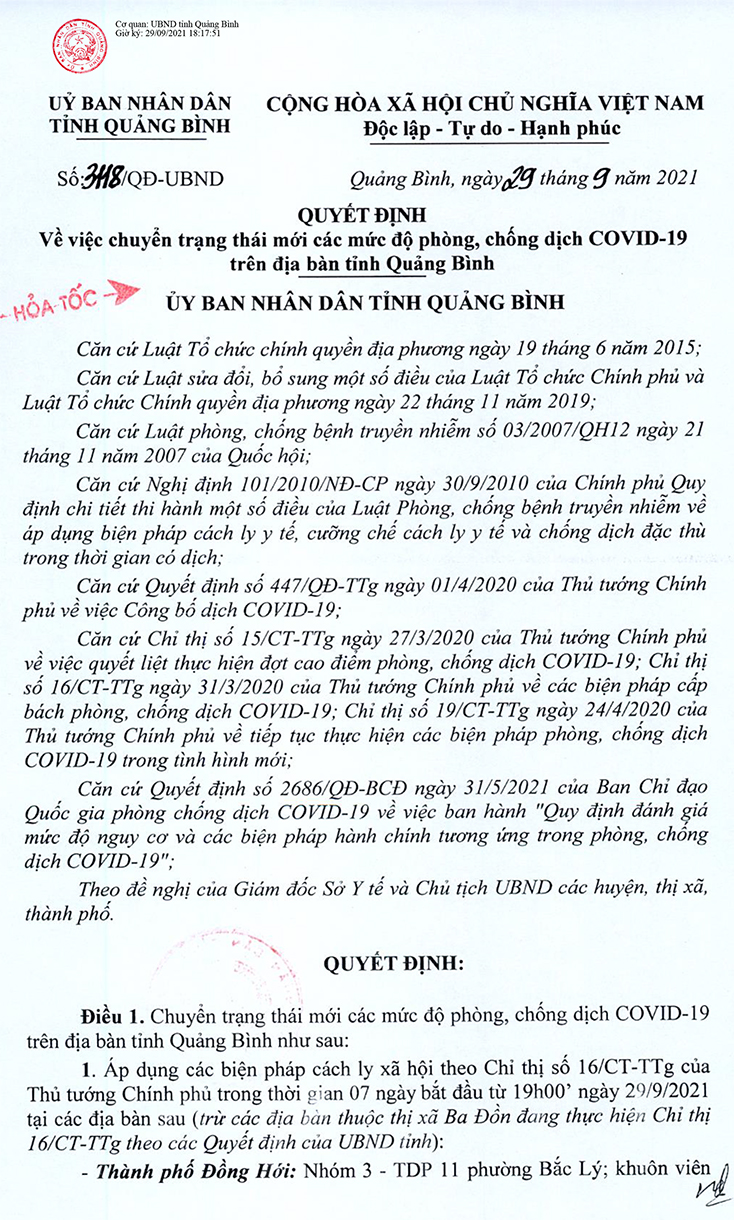 Cơ quan: UBND tỉnh Quảng Bình
Giờ ký: 29/09/2021 18:17:51
UỶ BAN NHÂN DÂN
TỈNH QUẢNG BÌNH
CỘNG HÒA XÃ HỘI CHỦ NGHĨA VIỆT NAM
Độc lập - Tự do - Hạnh phúc
Số:3118/QĐ-UBND
Quảng Bình, ngày 29 tháng 9 năm 2021
QUYẾT ĐỊNH
Về việc chuyển trạng thái mới các mức độ phòng, chống dịch COVID-19
trên địa bàn tỉnh Quảng Bình
HỎA TỐC
ỦY BAN NHÂN DÂN TỈNH QUẢNG BÌNH
Căn cứ Luật Tổ chức chính quyền địa phương ngày 19 tháng 6 năm 2015;
Căn cứ Luật sửa đổi, bổ sung một số điều của Luật Tổ chức Chính phủ và
Luật Tổ chức Chính quyền địa phương ngày 22 tháng 11 năm 2019;
Căn cứ Luật phòng, chống bệnh truyền nhiễm số 03/2007/QH12 ngày 21
tháng 11 năm 2007 của Quốc hội;
Căn cứ Nghị định 101/2010/NĐ-CP ngày 30/9/2010 của Chính phủ Quy
định chi tiết thi hành một số điều của Luật Phòng, chống bệnh truyền nhiễm về
áp dụng biện pháp cách ly y tế, cưỡng chế cách ly y tế và chống dịch đặc thù
trong thời gian có dịch;
Căn cứ Quyết định số 447/QĐ-TTg ngày 01/4/2020 của Thủ tướng Chính
phủ về việc Công bố dịch COVID-19;
Căn cứ Chỉ thị số 15/CT-TTg ngày 27/3/2020 của Thủ tướng Chính phủ
về việc quyết liệt thực hiện đợt cao điểm phòng, chống dịch COVID-19; Chỉ thị
số 16/CT-TTg ngày 31/3/2020 của Thủ tướng Chính phủ về các biện pháp cấp
bách phòng, chống dịch COVID-19; Chỉ thị số 19/CT-TTg ngày 24/4/2020 của
Thủ tướng Chính phủ về tiếp tục thực hiện các biện pháp phòng, chống dịch
COVID-19 trong tình hình mới;
Căn cứ Quyết định số 2686/QĐ-BCĐ ngày 31/5/2021 của Ban Chỉ đạo
Quốc gia phòng chống dịch COVID-19 về việc ban hành "Quy định đánh giá
mức độ nguy cơ và các biện pháp hành chính tương ứng trong phòng, chống
dịch COVID-19";
Theo đề nghị của Giám đốc Sở Y tế và Chủ tịch UBND các huyện, thị xã,
thành phố.
QUYẾT ĐỊNH:
Điều 1. Chuyển trạng thái mới các mức độ phòng, chống dịch COVID-19
trên địa bàn tỉnh Quảng Bình như sau:
1. Áp dụng các biện pháp cách ly xã hội theo Chỉ thị số 16/CT-TTg của
Thủ tướng Chính phủ trong thời gian 07 ngày bắt đầu từ 19h00’ ngày 29/9/2021
tại các địa bàn sau (trừ các địa bàn thuộc thị xã Ba Đồn đang thực hiện Chỉ thị
16/CT-TTg theo các Quyết định của UBND tỉnh):
- Thành phố Đồng Hới: Nhóm 3 - TDP 11 phường Bắc Lý; khuôn viên